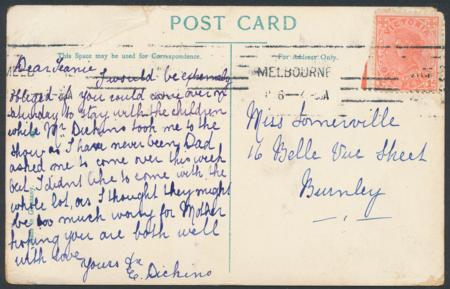 POST CARD
This Space may be used for Correspondence.
For Address Only.
VICTORIA
MELBOURNE
Dear Jeanie
I would be extremely
obliged if you could come over on
Saturday to stay with the children
while Mr. Dickins took me to the
Show as I have never been Dad
asked me to come over this week
but I didn't like to come with the
whole lot, as I thought they might
be too much worry for Mother
hoping you are both well
with love
Yours
E. Dickins
Miss Somerville
16 Belle Vue Street
Burnley